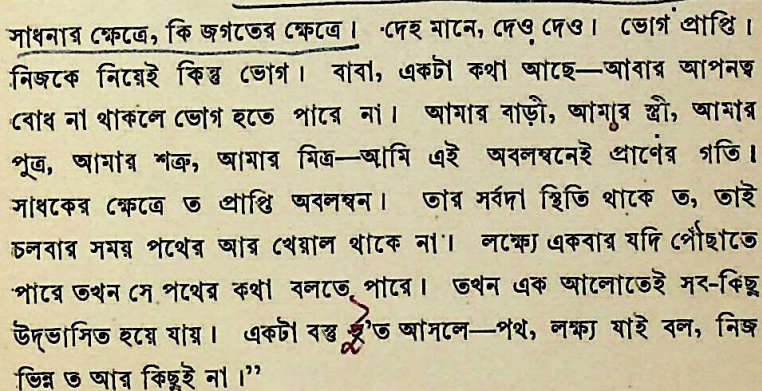 সাধনার ক্ষেত্রে, কি জগতের ক্ষেত্রে। দেহ মানে, দেও দেও। ভোগ প্রাপ্তি।
নিজকে নিয়েই কিন্তু ভোগ। বাবা, একটা কথা আছে—আবার আপনত্ব
বোধ না থাকলে ভোগ হতে পারে না। আমার বাড়ী, আমার স্ত্রী, আমার
পুত্র, আমার শত্রু, আমার মিত্র—আমি এই অবলম্বনেই প্রাণের গতি।
সাধকের ক্ষেত্রে ত প্রাপ্তি অবলম্বন। তার সর্বদা স্থিতি থাকে ত, তাই
চলবার সময় পথের আর খেয়াল থাকে না। লক্ষ্যে একবার যদি পৌঁছাতে
পারে তখন সে পথের কথা বলতে পারে। তখন এক আলোতেই সব-কিছু
উদ্ভাসিত হয়ে যায়। একটা বস্তু ত আসলে—পথ, লক্ষ্য যাই বল, নিজ
ভিন্ন ত আর কিছুই না।”